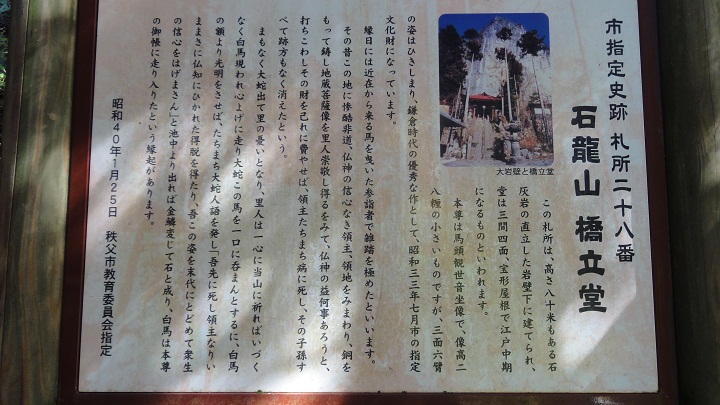 市指定史跡 札所二十八番
石龍山 橋立堂
この札所は、高さ八十米もある石
灰岩の直立した岩壁下に建てられ、
堂は三間四面、宝形屋根で江戸中期
になるものといわれます。
本尊は馬頭観世音坐像で、像高二
八糎の小さいものですが、三面六臂
大岩壁と橋立堂
の姿はひきしまり、鎌倉時代の優秀な作として、昭和三三年七月市の指定
文化財になっています。
縁日には近在から来る馬を曳いた参詣者で雑踏を極めたといいます。
その昔この地に惨酷非道、仏神の信心なき領主、領地をみまわり、銅を
もって鋳し地蔵菩薩像を里人崇敬し得るをみて、仏神の益何事あろうと、
打ちこわしその財を己れに費やせば、領主たちまち病に死し、その子孫す
べて跡方もなく消えたという。
まもなく大蛇出て里の憂いとなり、里人は一心に当山に祈ればいづく
なく白馬現われ心よげに走り大蛇この馬を一口に呑まんとするに、白馬
の額より光明をさせば、たちまち大蛇人語を発し「吾先に死し領主なりい
ままさに仏知にひかれた得脱を得たり、吾この姿を末代にとどめて衆生
の信心をはげまさん」と池中より出れば金鱗変じて石と成り、白馬は本尊
の御帳に走り入りたという縁起があります。
昭和40年1月25日 秩父市教育委員会指定